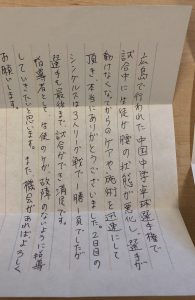 広島で行われた中国中学卓球選手権で
試合中に生徒が腰の状態が悪化し、選手が
動けなくなてからのケアや施術を迅速にして
頂き、本当にありがとうございました。2日目の
シングルスは3人リーグ戦で1勝1負でしたが
選手も最後まで試合ができ満足です。
指導者として、生徒のケガ、故障のないように指導
していきたいと思います。また機会があれば、よろしく
お願いします。